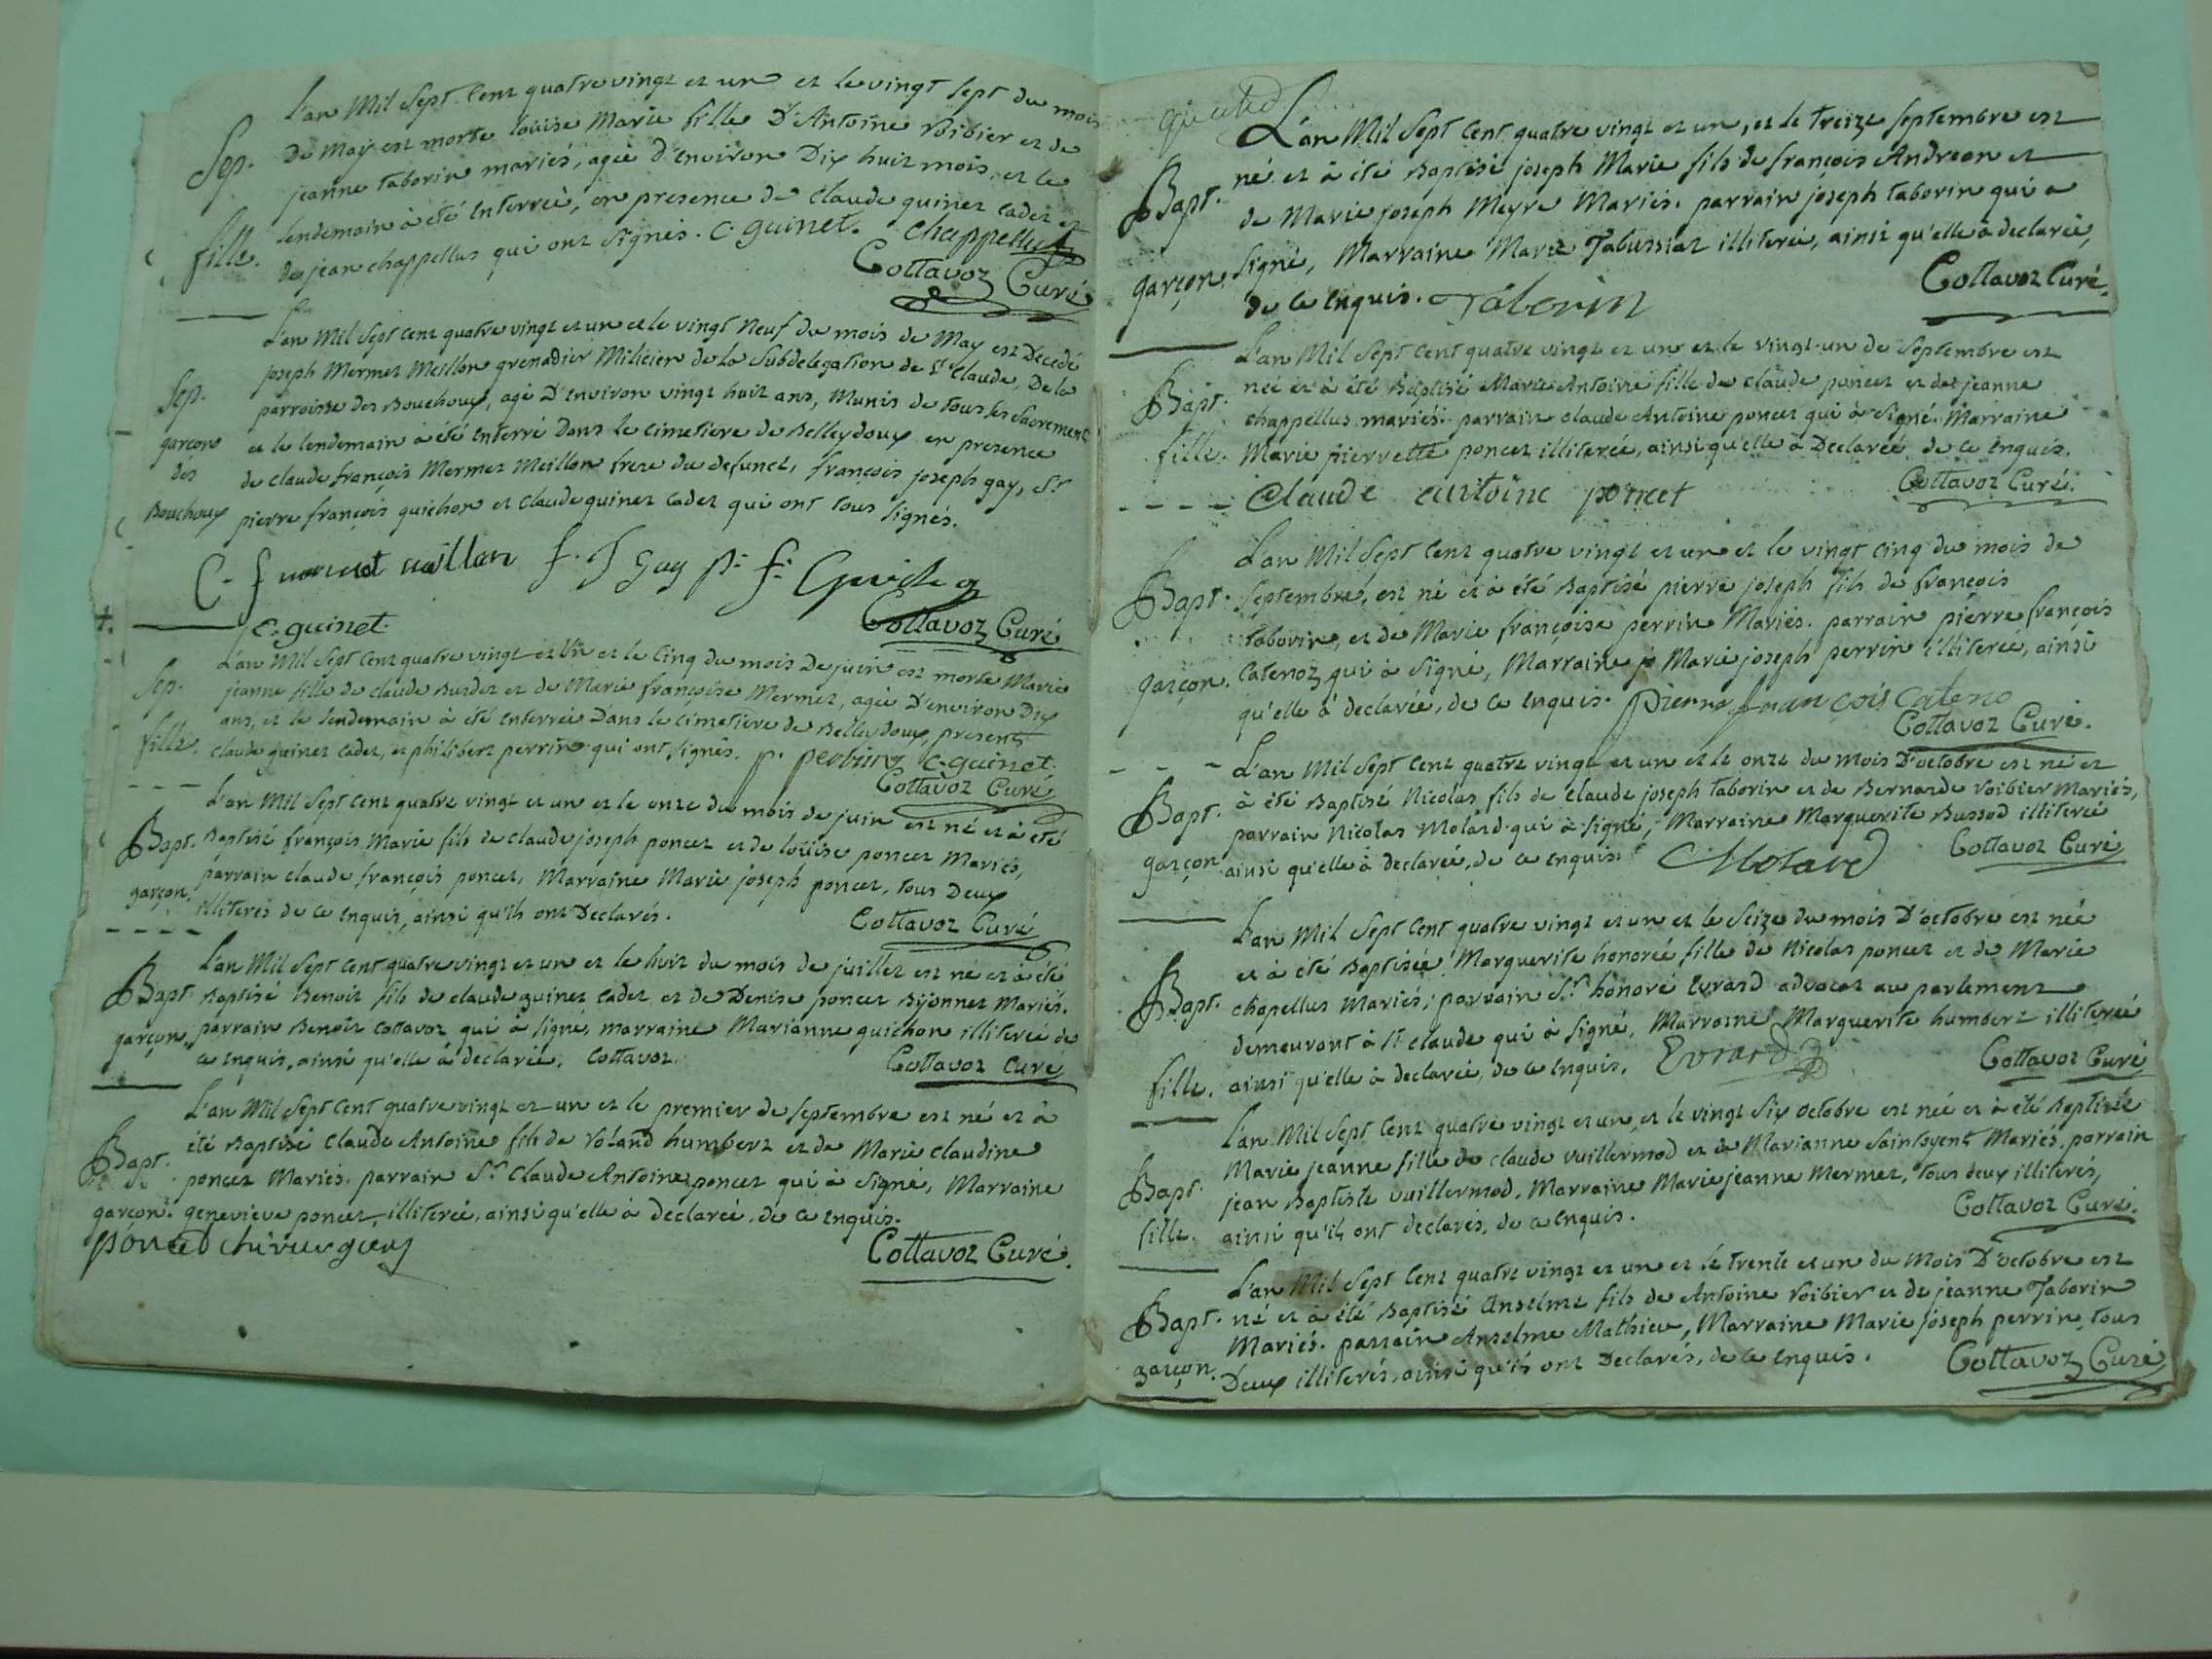 L'an Mil Sept Cent quatre vingt et un et le vingt sept du mois
Sep. De May est morte loüise Marie fille D'Antoine Roibier et de
jeanne taborin mariés, agée d'environ Dix huit mois, et le
lendemain à été Enterrée, en presence de claude guinet cadet et
fille. de jean chappellus qui ont signés. C. guinet. chappellus
Cottavoz Curé
L'an Mil Sept cent quatre vingt et un et le vingt Neuf du mois de May est Decedé
joseph Mermet Meillon grenadier Milicien de la Subdelegation de St Claude, De la
Sep. parroisse des Bouchoux, agé D'environ vingt huit ans, Munis de tous les Sacrements
garçon et le lendemain à été Enterré Dans le cimetiere de Belleydoux en presence
des de claude françois Mermet Meillon frere du defunct, françois joseph gay, Sr
Bouchoux pierre françois guichon et claude guinet cadet qui ont tous signés.
C. f mermet meillon f. J gay p. f. Guichon
c. guinet Cottavoz Curé
L'an Mil Sept Cent quatre vingt et Un et le Cinq du mois De juin est morte Marie
Sep. jeanne fille de claude Burdet et de Marie françoise Mermet, agée D'environ Dix
ans, et le lendemain à été enterrée Dans le cimetiere de Belleydoux, presents
fille. claude guinet cadet, et philibert perrin qui ont signés. p. perrin c. guinet.
Cottavoz Curé
L'an Mil Sept Cent quatre vingt et un et le onze du mois de juin est né et à été
Bapt. Baptisé françois Marie fils de claude joseph poncet et de loüise poncet Mariés,
parrain claude françois poncet, Marraine Marie joseph poncet, tous Deux
garçon. illiterés de ce Enquis, ainsi qu'ils ont Declarés.
Cottavoz Curé
L'an Mil Sept Cent quatre vingt et un et le huit du mois de juillet est né et à été
Bapt. Baptisé Benoit fils de claude guinet cadet et de Denise poncet Bijonnet Mariés.
garçon. parrain Benoit cottavoz qui à signé, marraine Marianne guichon illiterée de
ce Enquis, ainsi qu'elle à declarée, Cottavoz. Cottavoz Curé
L'an Mil Sept Cent quatre vingt et un et le premier de septembre est né et à
été Baptisé Claude Antoine fils de Roland humbert et de Marie claudine
Bapt. poncet Mariés. parrain Sr Claude Antoine poncet qui à signé, Marraine
garçon. genevieve poncet, illiterée, ainsi qu'elle à declarée, de ce Enquis.
poncet chirurgien Cottavoz Curé.
L'an Mil Sept Cent quatre vingt et un, et le treize septembre est
né et à été Baptisé joseph Marie fils de françois Andreon et
Bapt. de Marie joseph Meyre Mariés. parrain joseph taborin qui a
garçon. signé, Marraine Marie Tabussiat illiterée, ainsi qu'elle à declarée,
de ce Enquis. Taborin Cottavoz Curé.
L'an Mil Sept Cent quatre vingt et un et le vingt-un de Septembre est
Bapt. née et à été Baptisé Marie Antoine fille de claude poncet et de jeanne
chappellus mariés. parrain claude Antoine poncet qui à signé. Marraine
fille. Marie pierrette poncet illiterée, ainsi qu'elle à Declarée, de ce Enquis.
Claude antoine poncet Cottavoz Curé.
L'an Mil Sept Cent quatre vingt et un et le vingt cinq du mois de
Bapt. Septembre, est né et à été Baptisé pierre joseph fils de françois
taborin, et de Marie françoise perrin Mariés. parrain pierre françois
garçon. Catenoz qui à signé, Marraine Marie joseph perrin illiterée, ainsi
qu'elle à declarée, de ce Enquis. Pierre francois Cateno
Cottavoz Curé.
L'an Mil Sept Cent quatre vingt et un et le onze du mois D'octobre est né et
Bapt. à été Baptisé Nicolas fils de claude joseph taborin et de Bernarde Roibier Mariés,
parrain Nicolas Molard qui à signé, Marraine Marguerite Bussod illiterée
garçon ainsi qu'elle à declarée, de ce Enquis. Molard Cottavoz Curé
L'an Mil Sept Cent quatre vingt et un et le Seize du mois D'octobre est née
et à été Baptisée Marguerite honorée fille de Nicolas poncet et de Marie
Bapt. chapellus Mariés; parrain Sr honoré Evrard advocat au parlement
demeurant à St claude qui à signé, Marraine Marguerite humbert illiterée
fille. ainsi qu'elle à declarée, de ce Enquis. Evrard Cottavoz Curé
L'an Mil Sept Cent quatre vingt et un, et le vingt Six octobre est née et à été Baptisée
Marie jeanne fille de claude vuillermod et de Marianne Saintoyent Mariés. parrain
Bapt. jean Baptiste Vuillermod, Marraine Marie jeanne Mermet, tous deux illiterés,
fille. ainsi qu'ils ont declarés, de ce Enquis. Cottavoz Curé.
L'an Mil Sept Cent quatre vingt et un et le trente et un du Mois D'octobre est
Bapt. né et à été Baptisé Anselme fils de Antoine Roibier et de jeanne Taborin
Mariés. parrain Anselme Mathieu, Marraine Marie joseph perrin, tous
garçon. Deux illiterés, ainsi qu'ils ont Declarés, de ce Enquis. Cottavoz Curé